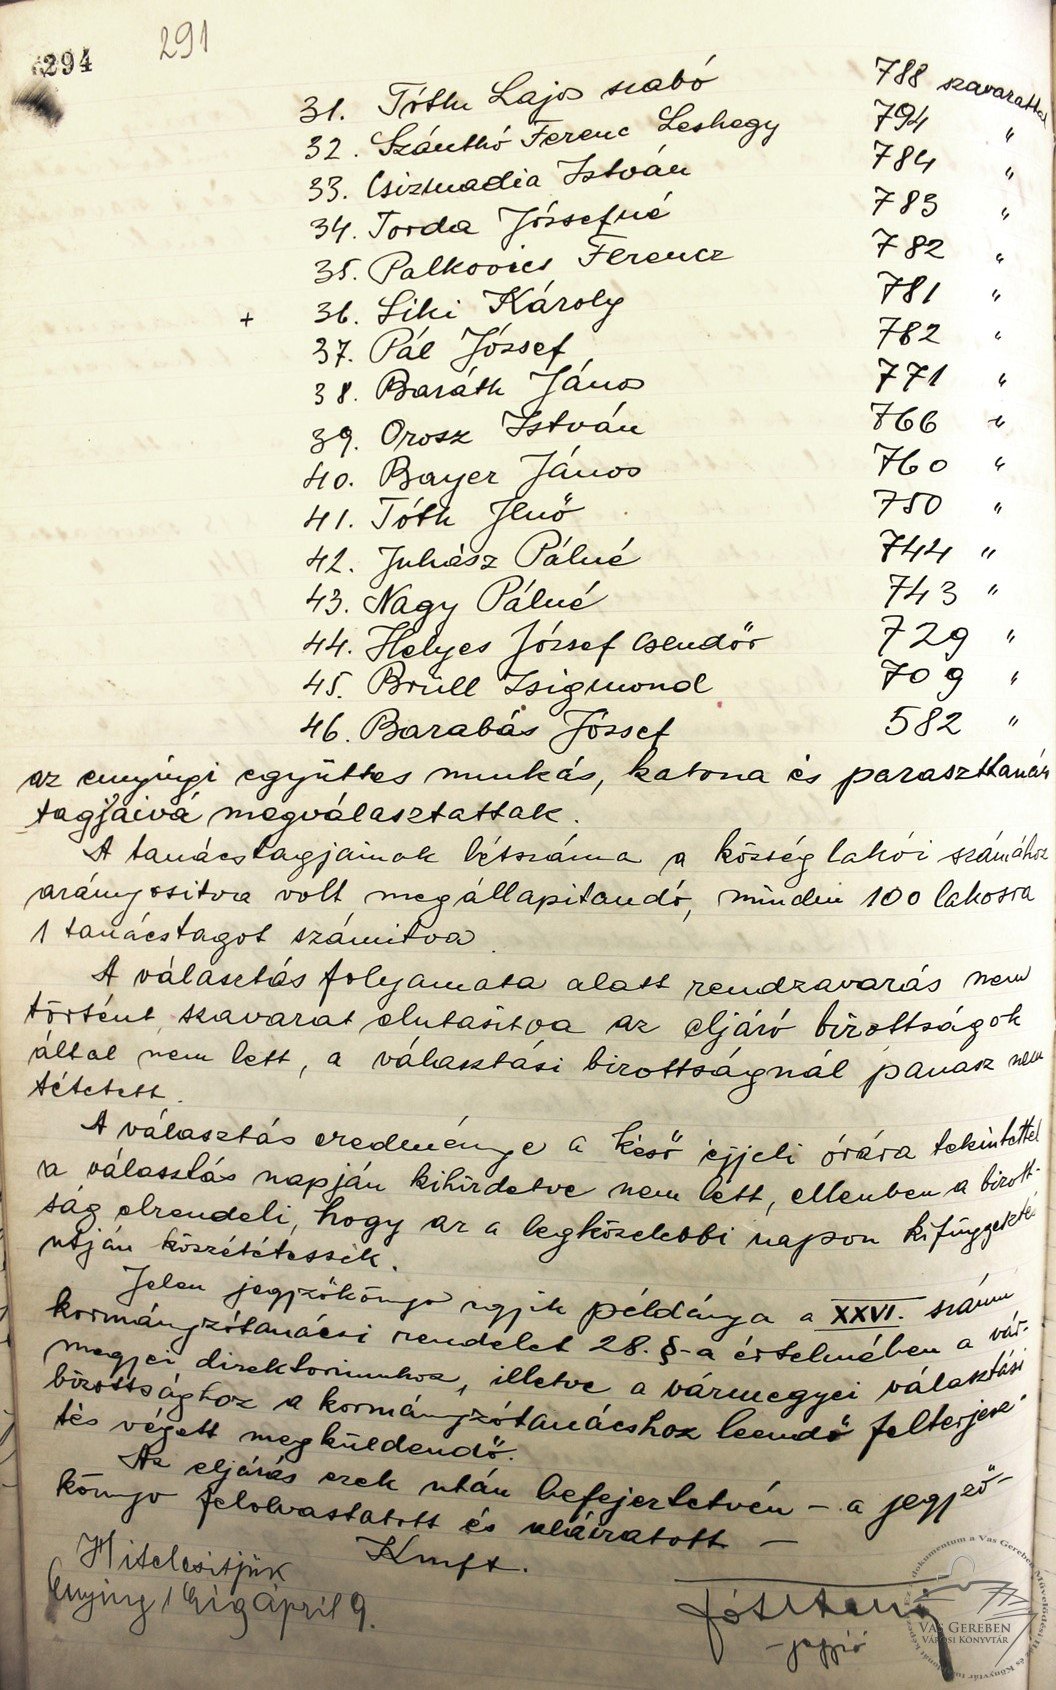 294 291
31. Tóth Lajos szabó 788 szavazattal
32. Szánthó Ferenc Leshegy 794 "
33. Csizmadia István 784 "
34. Torda Józsefné 783 "
35. Palkovics Ferencz 782 "
+ 36. Liki Károly 781 "
37. Pál József 782 "
38. Baráth János 771 "
39. Orosz István 766 "
40. Bayer János 760 "
41. Tóth Jenő 750 "
42. Juhász Pálné 744 "
43. Nagy Pálné 743 "
44. Helyes József csendőr 729 "
45. Brüll Zsigmond 709 "
46. Barabás József 582 "
az enyingi együttes munkás, katona és paraszttanács
tagjaivá megválasztattak.
A tanácstagjainok létszáma a község lakói számához
arányositva volt megállapitandó, minden 100 lakosra
1 tanácstagot számitva
A választás folyamata alatt rendzavarás nem
történt, szavazat elutasitva az eljáró bizottságok
által nem lett, a választási bizottságnál panasz nem
tétetett.
A választás eredménye a késő éjjeli órára tekintettel
a választás napján kihirdetve nem lett, ellenben a bizott-
ság elrendeli, hogy az a legközelebbi napon kifüggesztés
utján közzététessék.
Jelen jegyzőkönyv egyik példánya a XXVI. számu
kormányzótanácsi rendelet 28. §-a értelmében a vár-
megyei direktoriumhoz, illetve a vármegyei választási
bizottsághoz a kormányzótanácshoz leendő felterjesz-
tés végett megküldendő.
Az eljárás ezek után befejeztetvén - a jegyző-
könyv felolvastatott és aláiratott -
Kmft.
Hitelesitjük
Enying 1919 április 9.
jegyző
VAS GEREBEN
VÁROSI KÖNYVTÁR